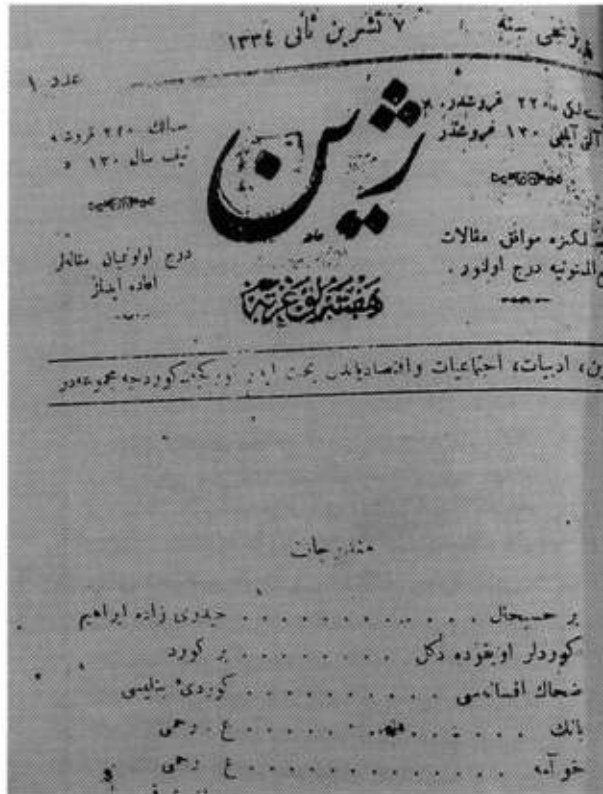 برنجی سنه
٧ تشرین ثانی ١٣٣٤
عدد ١
ژین
٢٢٠ غروشدر.
آلتی آیلغی ١٣٠ غروشدر
سالك ٢٢٠ غروش
نیف سال ١٣٠ »
مسلكمزه موافق مقالات
درج اولنور.
درج اولونمیان مقاله‌لر
اعاده ایدلمز
هفته‌لق غزته
دین، ادبیات، اجتماعیات و اقتصادیاتدن بحث ایدر تورکجه کوردجه مجموعه‌در
مندرجات
بر حسبحال . . . . . . . . . . . حیدری زاده ابراهیم
کوردلر اویقوده دکل . . . . . . . . بر کورد
ضحاك افسانه‌سی . . . . . . . . . . کوردیٔ بتلیسی
بانك . . . . . . . . . . ع . رحمی
خو آمه . . . . . . . . . . . . ع . رحمی